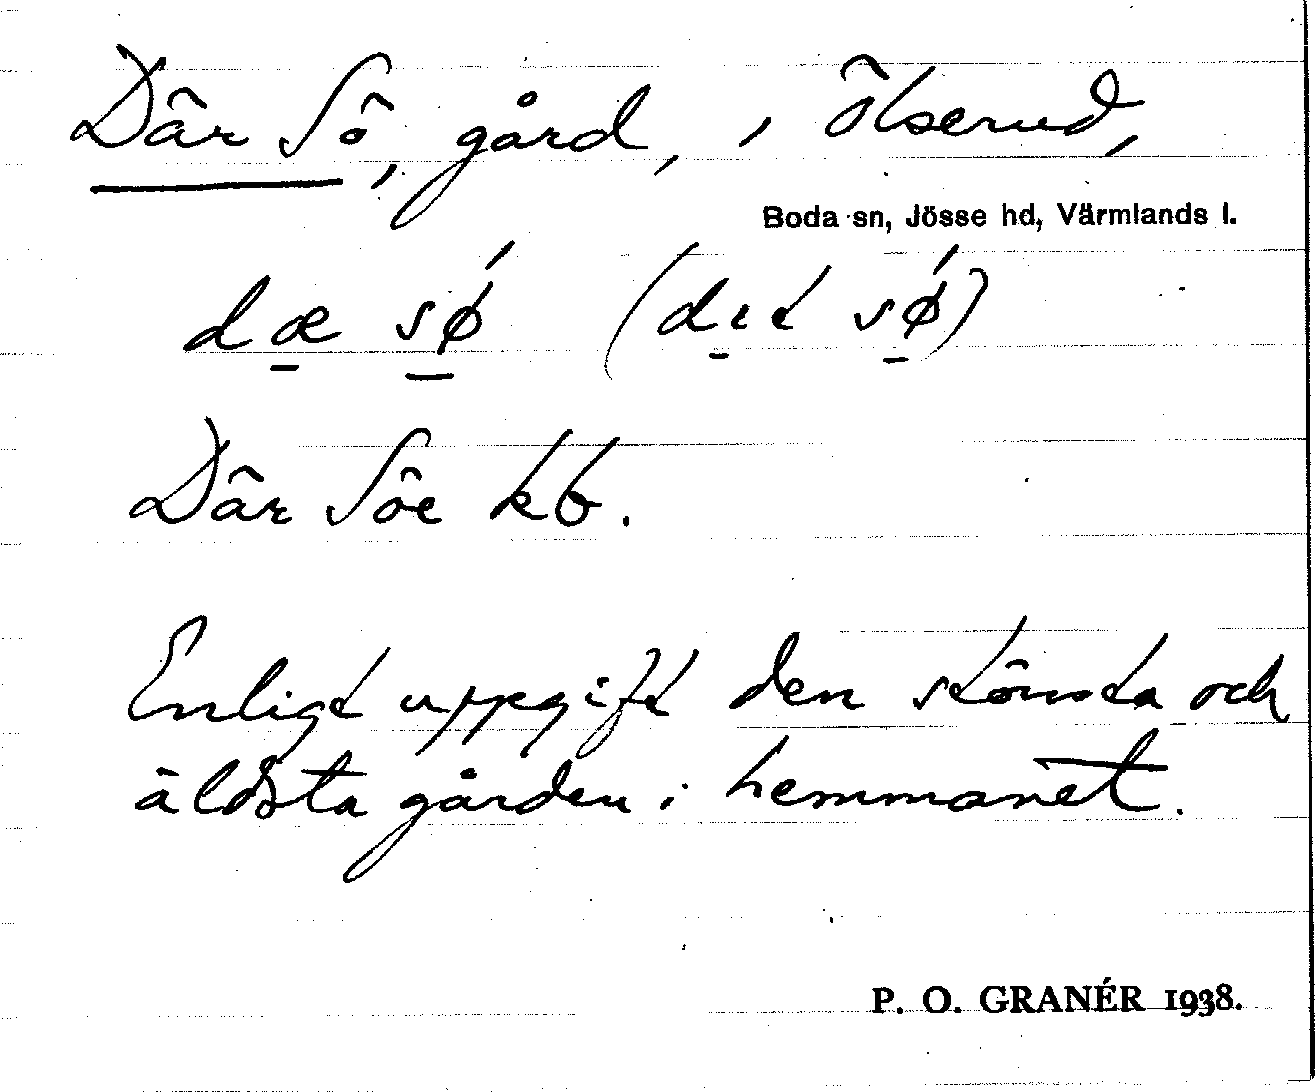 Där Sö, gård, i Ölserud,
Boda sn, Jösse hd, Värmlands l.
dæ sǿ (dıt sǿ)
Där Söe kb.
Enligt uppgift den största och
äldsta gården i hemmanet.
P. O. GRANÉR 1938.